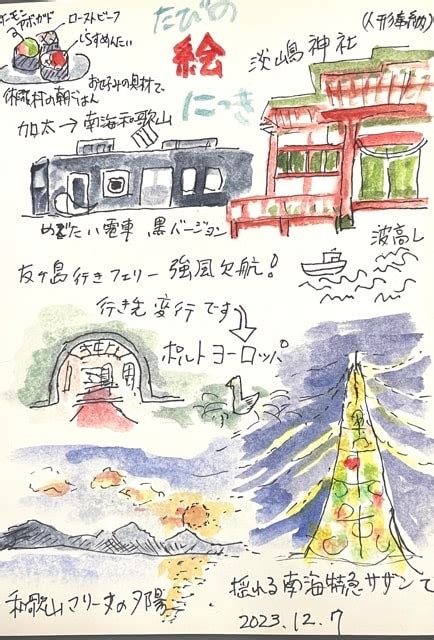 たびの
絵
にっき
ーモン
アボカド
ローストビーフ
しらすめんたい
お好みの具材で
休暇村の朝ごはん
淡嶋神社
(人形奉納)
加太→南海和歌山
めでたい電車 黒バージョン
波高し
友ヶ島行きフェリー 強風欠航!
行き先変行です
ポルトヨーロッパ
和歌山マリーナの夕陽
揺れる南海特急サザンて
2023.12.7